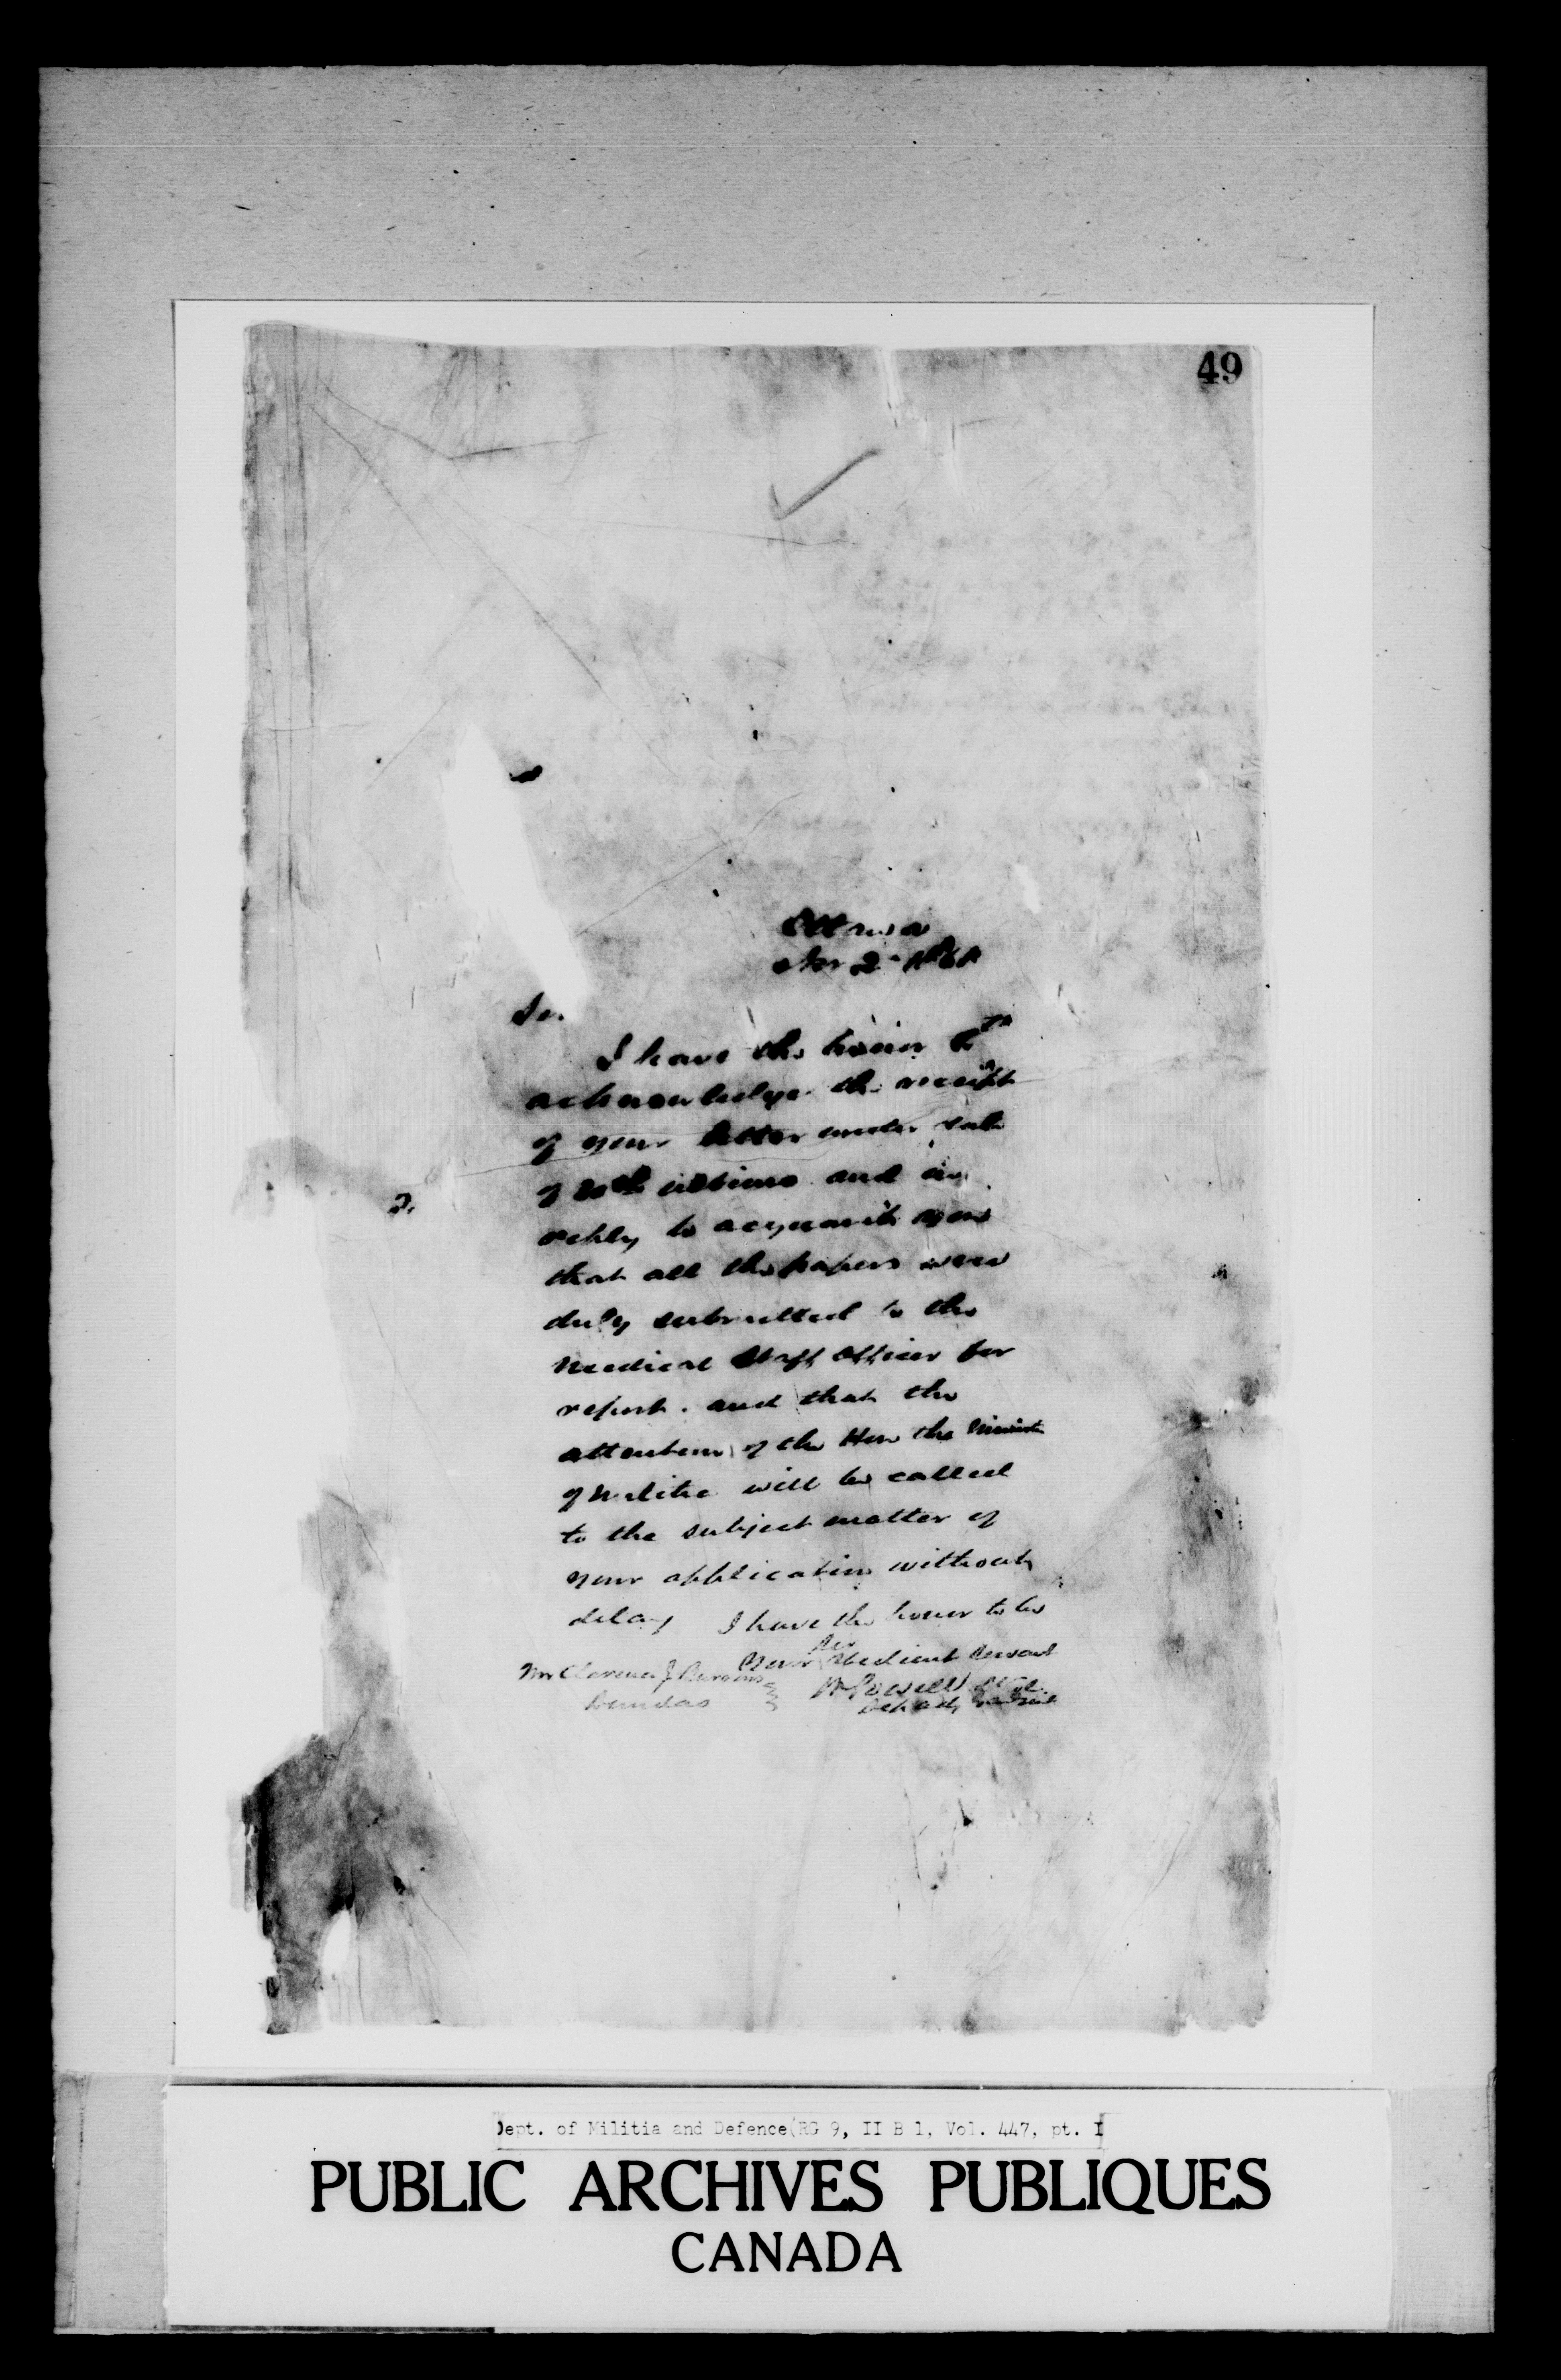 49
Ottawa
Sir.
I have the honor to
acknowledge the receipt
of your letter under date
of 20th ultimo and in
reply to acquaint you
that all the papers were
duly submitted to the
Medical Staff Officer for
report. and that the
attention of the Hon the Minister
of Militia will be called
to the subject matter of
your application without
delay I have the honor to be
Sir
Your obedient Servant
Mr Clarence J
Dundas
W Powell
Dep Adj
Dept. of Militia and Defence(RG 9, II B 1, Vol. 447, pt. I
PUBLIC ARCHIVES PUBLIQUES
CANADA